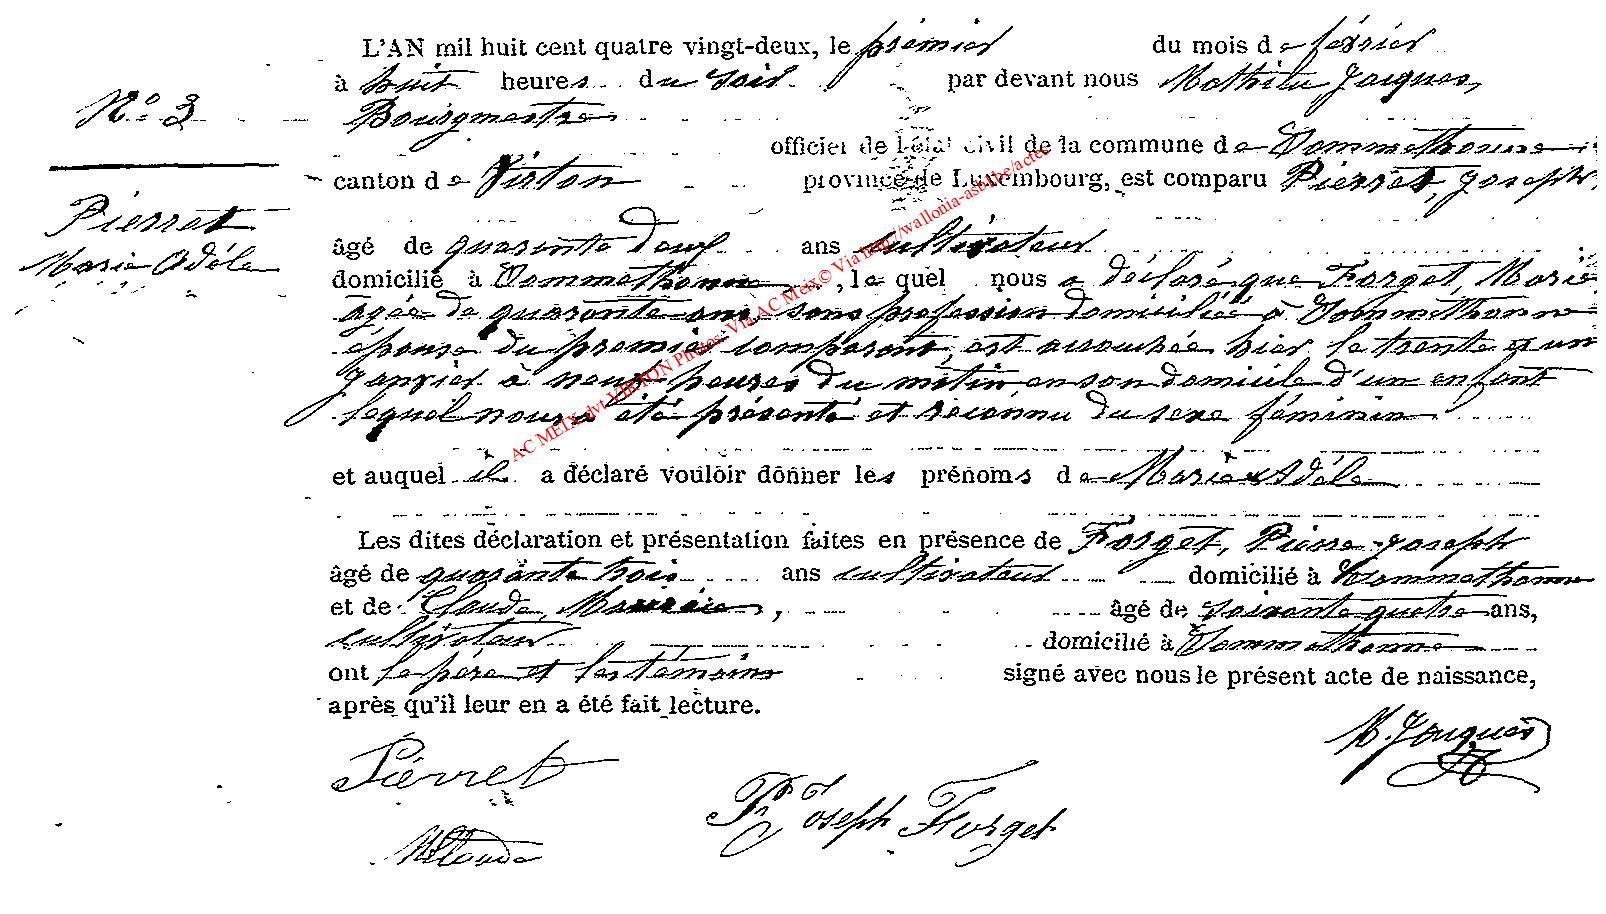 L'AN mil huit cent quatre vingt-deux, le premier du mois de février
à huit heures du soir par devant nous Mathieu Jacques,
N° 3 Bourgmestre
officier de l'état civil de la commune de Sommethonne
canton de Virton province de Luxembourg, est comparu Pierret, Joseph,
Pierret
Marie Adèle
âgé de quarante deux ans cultivateur
domicilié à Sommethonne, le quel nous a déclaré que Forget, Marie
agée de quarante ans sans profession domiciliée à Sommethonne
épouse du premier comparant, est accouchée hier le trente et un
Janvier à neuf heures du matin en son domicile d'un enfant
lequel nous a été présenté et reconnu du sexe féminin
et auquel il a déclaré vouloir donner les prénoms de Marie Adèle
Les dites déclaration et présentation faites en présence de Forget, Pierre-Joseph
âgé de quarante trois ans cultivateur domicilié à Sommethonne
et de Claude, âgé de soixante quatre ans,
cultivateur domicilié à Sommethonne
ont le père et les témoins signé avec nous le présent acte de naissance,
après qu'il leur en a été fait lecture.
M. Jacques
Pierret
Joseph Forget
Claude
AC MEIX-dvt-VIRTON Photos: Via AC Meix© Via http://wallonia-asbl.be/actes